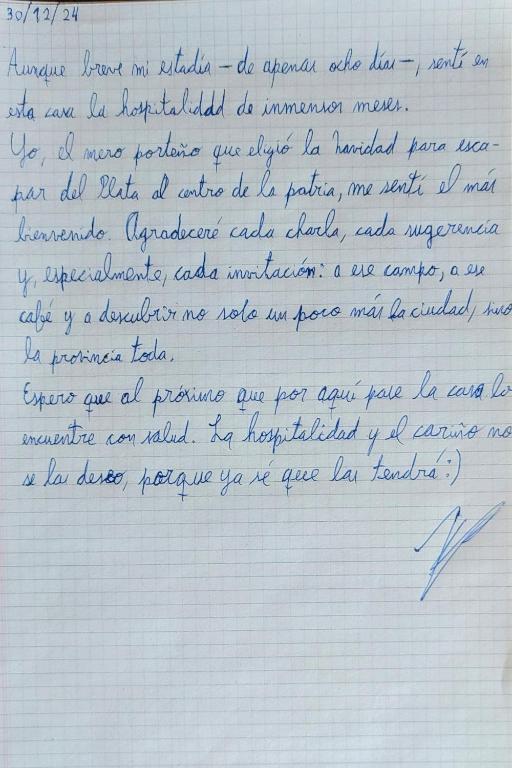 30/12/24
Aunque breve mi estadía – de apenas ocho días –, sentí en
esta casa la hospitalidad de inmensos meses.
Yo, el mero porteño que eligió la navidad para esca-
par del Plata al centro de la patria, me sentí el más
bienvenido. Agradeceré cada charla, cada sugerencia
y, especialmente, cada invitación: a ese campo, a ese
café y a descubrir no solo un poco más la ciudad, sino
la provincia toda.
Espero que al próximo que por aquí pase la casa lo
encuentre con salud. La hospitalidad y el cariño no
se las deseo, porque ya sé que las tendrá :)